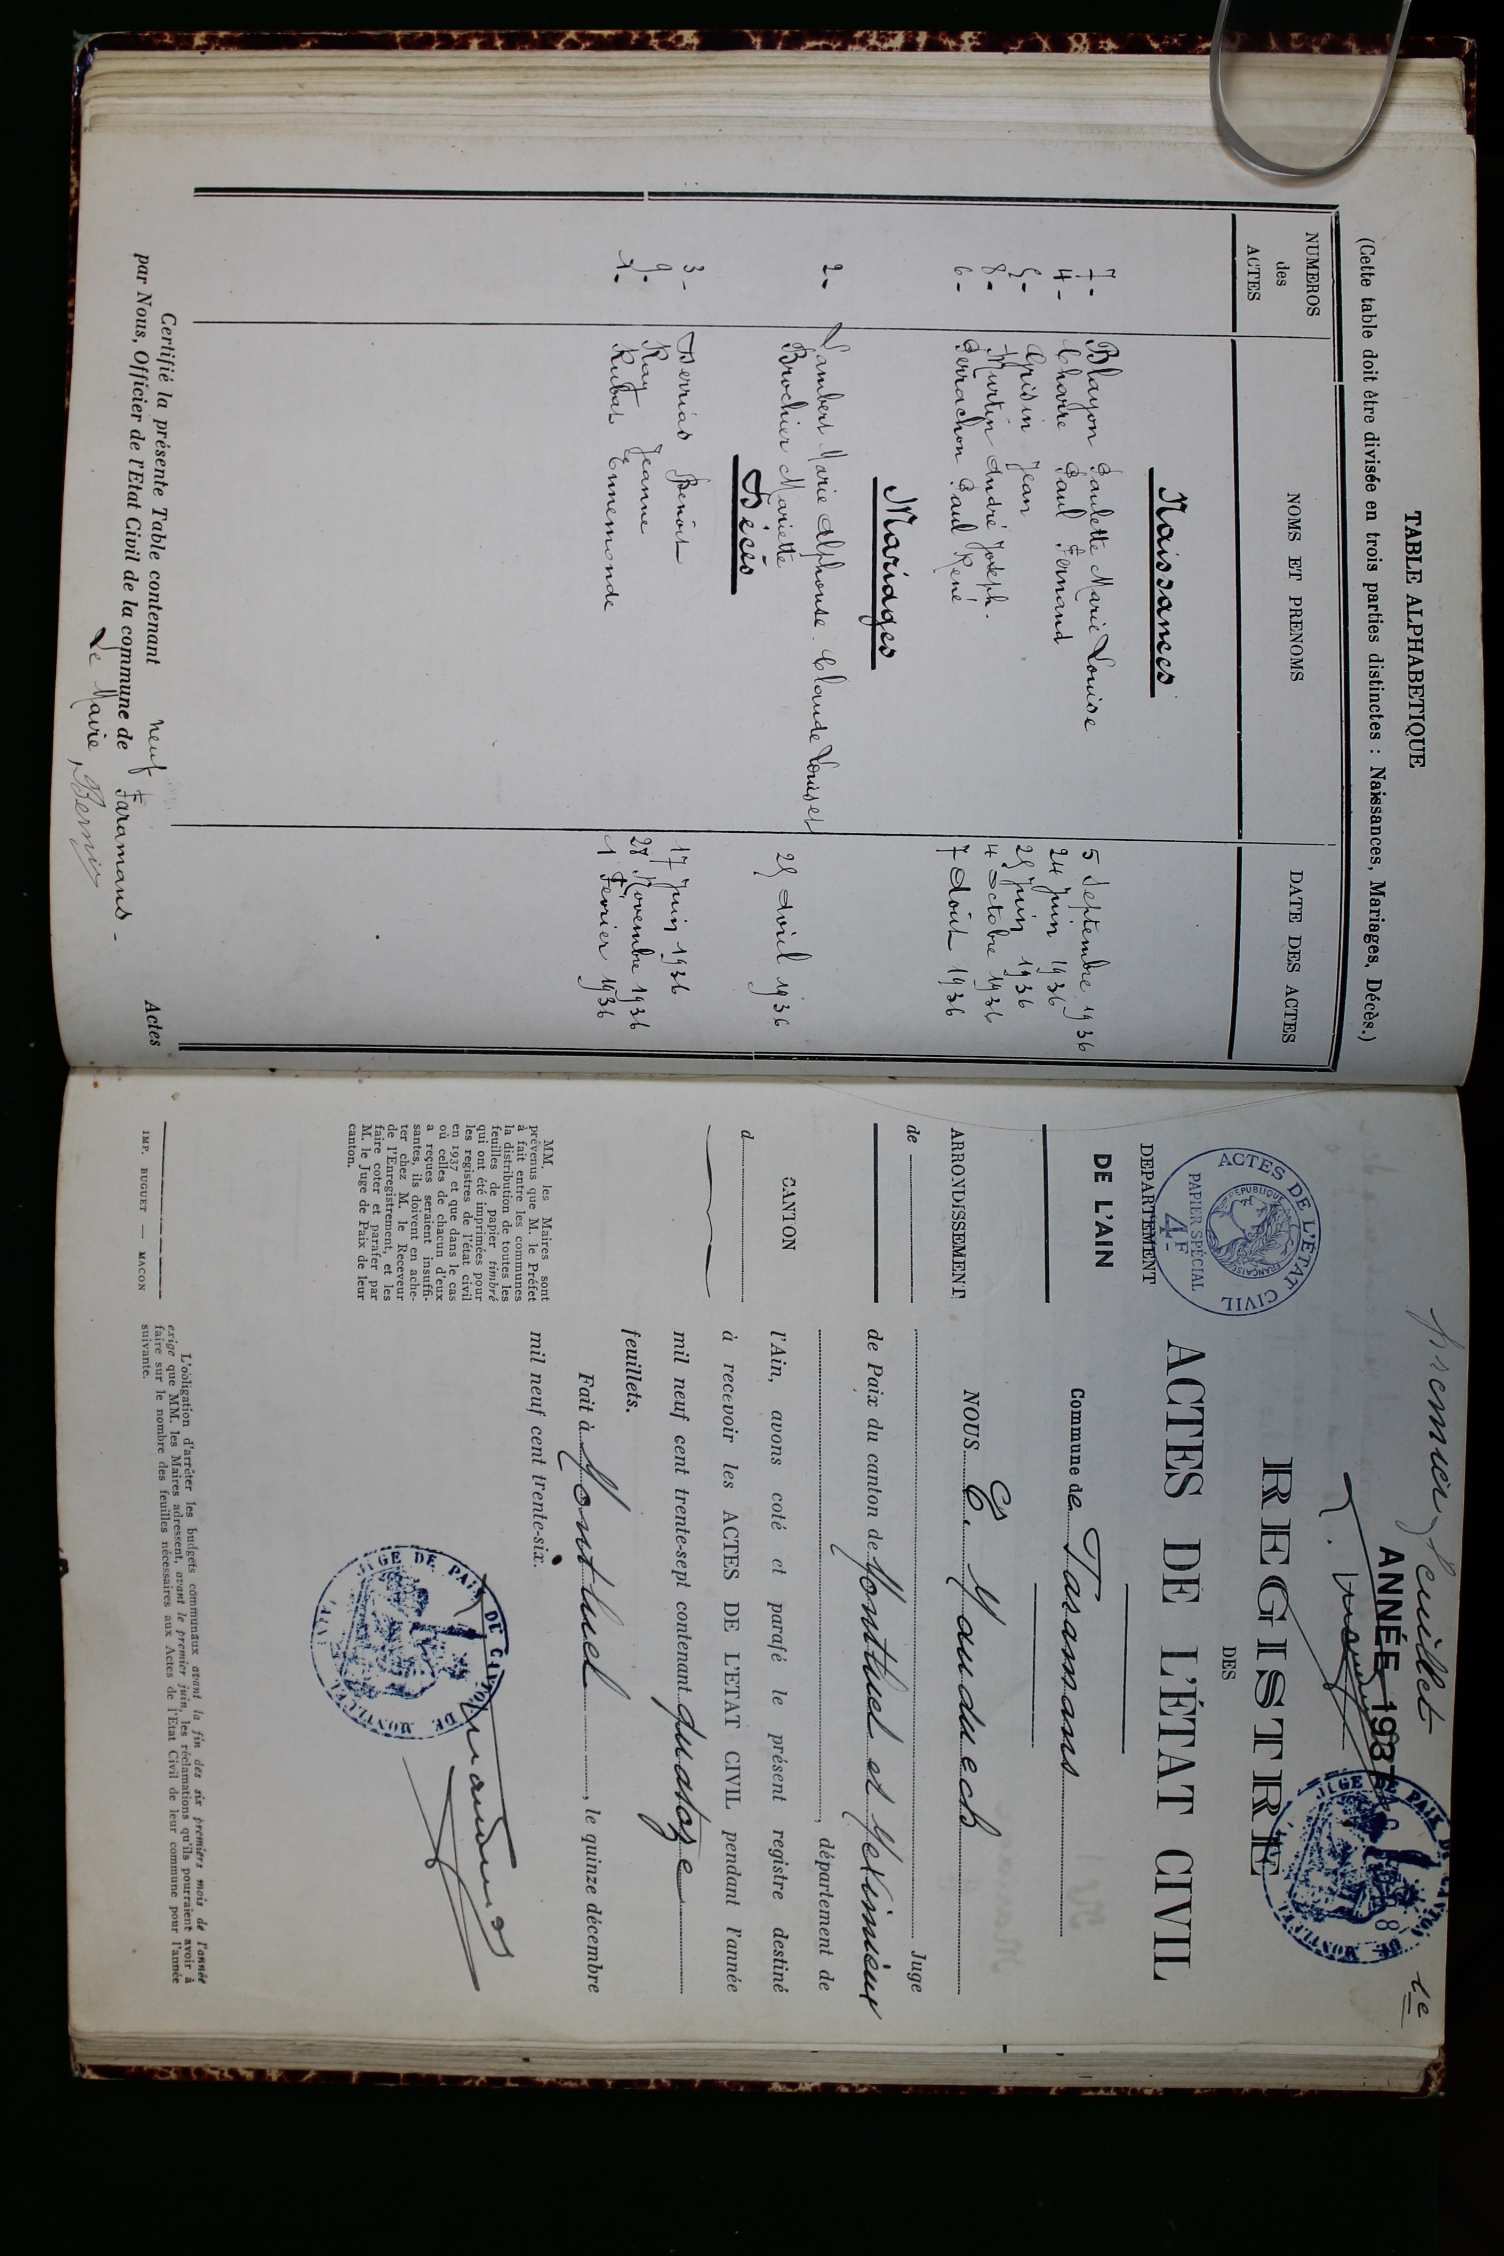 TABLE ALPHABETIQUE
(Cette table doit être divisée en trois parties distinctes : Naissances, Mariages, Décès.)
NUMEROS des ACTES NOMS ET PRENOMS DATE DES ACTES
Naissances
7- Blayon Paulette Marie Louise 5 Septembre 1936
4- Chavre Paul Fernand 24 Juin 1936
5- Grisin Jean 25 Juin 1936
8- Murtin André Joseph. 4 Octobre 1936
6- Perrachon Paul René 7 Août 1936
Mariages
2- Lambert Marie Alphonse Claude Louis et
Brochier Mariette 25 Avril 1936
Décès
3- Derrias Benoit 17 Juin 1936
9- Ray Jeanne 28 Novembre 1936
1- Rubat Ennemonde 1 Février 1936
Certifié la présente Table contenant neuf Actes
par Nous, Officier de l'Etat Civil de la commune de Faramans -
Le Maire,
premier feuillet 1e
ANNÉE 1937
REGISTRE
DES
ACTES DE L'ÉTAT CIVIL
ACTES DE L'ÉTAT CIVIL
RÉPUBLIQUE FRANÇAISE
PAPIER SPÉCIAL
4F
DEPARTEMENT
DE L'AIN
ARRONDISSEMENT
de
CANTON
d
MM. les Maires sont
prévenus que M. le Préfet
a fait entre les communes
la distribution de toutes les
feuilles de papier timbré
qui ont été imprimées pour
les registres de l'état civil
en 1937 et que dans le cas
où celles de chacun d'eux
a reçues seraient insuffi-
santes, ils doivent en ache-
ter chez M. le Receveur
de l'Enregistrement, et les
faire coter et parafer par
M. le Juge de Paix de leur
canton.
IMP. BUGUET — MACON
Commune de Faramans
NOUS
Juge
de Paix du canton de Montluel et Meximieux
, département de
l'Ain, avons coté et parafé le présent registre destiné
à recevoir les ACTES DE L'ETAT CIVIL pendant l'année
mil neuf cent trente-sept contenant quatorze
feuillets.
Fait à Montluel, le quinze décembre
mil neuf cent trente-six.
JUGE DE PAIX DU CANTON DE MONTLUEL
L'obligation d'arrêter les budgets communaux avant la fin des six premiers mois de l'année
exige que MM. les Maires adressent, avant le premier juin, les réclamations qu'ils pourraient avoir à
faire sur le nombre des feuilles nécessaires aux Actes de l'Etat Civil de leur commune pour l'année
suivante.